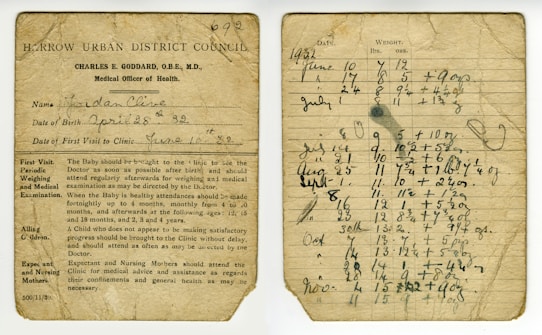 692
HARROW URBAN DISTRICT COUNCIL
CHARLES E. GODDARD, O.B.E., M.D.,
Medical Officer of Health.
Name Jordan Clive
Date of Birth April 28th 32
Date of First Visit to Clinic June 10th 32
First Visit. The Baby should be brought to the Clinic to see the
Periodic Doctor as soon as possible after birth, and should
Weighing attend regularly afterwards for weighing and medical
and Medical examination as may be directed by the Doctor.
Examination. When the Baby is healthy attendances should be made
fortnightly up to 6 months, monthly from 6 to
months, and afterwards at the following ages: 12, 15
and 18 months, and 2, 3 and 4 years.
Ailing A Child who does not appear to be making satisfactory
Children. progress should be brought to the Clinic without delay,
and should attend as often as may be directed by the
Doctor.
Expectant Expectant and Nursing Mothers should attend the
and Nursing Clinic for medical advice and assistance as regards
Mothers. their confinements and general health as may be
necessary.
DATE. WEIGHT.
lbs. ozs.
1932
June 10 7 12
" 17 8 5 + 9 ozs
" 24 8 9½
July 1 8 11
8 9 5 + 10 oz
July 14 9 10½ + 5½ oz
" 21 10
Aug 25 11
Sept 1 11 10 + 2¼ oz
" 8 11 11½ + 1½ oz
16 12 1 + 5½ oz
23 12 8¾ + 7¾ oz
30th 13 2
Oct 7 13 7
14 13 12¼
14 1
28 14 9 + 8 oz
Nov 4 15
11 15 9